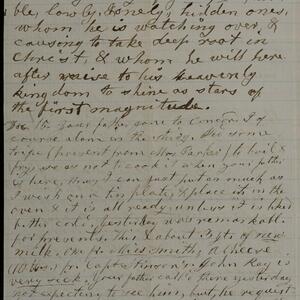 ble, lowly, lonely, hidden ones,
whom he is watching over, &
causing to take deep root in
Christ, & whom he will here
after raise to his heavenly
kingdom to shine as stars of
the first magnitude.
15 Your father gone to Concord of
course alone in the study. Had some
tripe (present from Mrs. ) to broil &
fry so as not to cook it when your father
is here, thus I can just put as much as
I wish on the plate, & place it in the
oven & it is all ready unless it is liked
better cold. Yesterday was remarkable
for presents. This, & about 3 pts of new
milk, from Mrs Smith, a cheese
(10 lbs) fr. Capt. John Ray is
very sick, your father call'd there yesterday
not expecting to see him, but he request